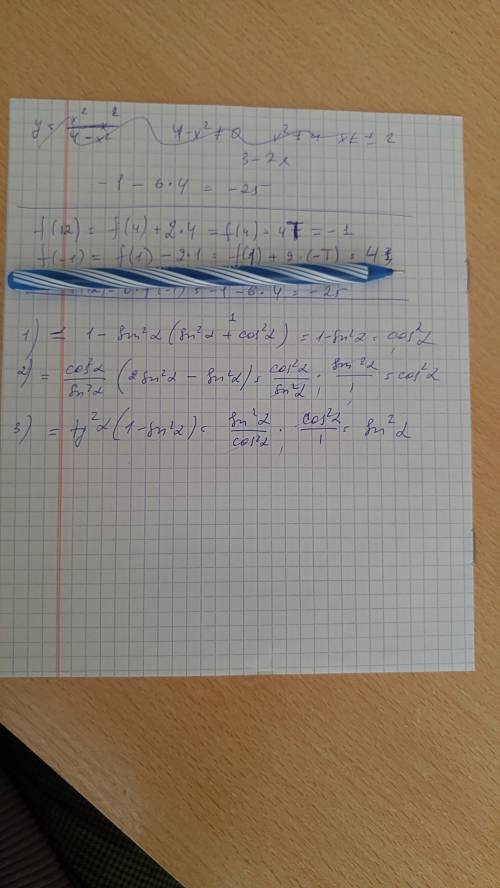 y = x² / 4 - x²   4 - x² ≠ 0   x² ≠ 4   x ≠ ± 2
3 - 2x
- 1 - 6·4 = -25
f(12) = f(4) + 2·4 = f(4) = 4T = -1
f(-1) = f(1) - 2·1 = f(1) + 2·(-T) = 4
-1 - 6·4 = -25
1) = 1 - sin²α (sin²α + cos²α) = 1 - sin²α = cos²α
1
2) = cos²α / sin²α (2sin²α - sin²α) = cos²α / sin²α · sin²α / 1 = cos²α
3) = tg²α (1 - sin²α) = sin²α / cos²α · cos²α / 1 = sin²α